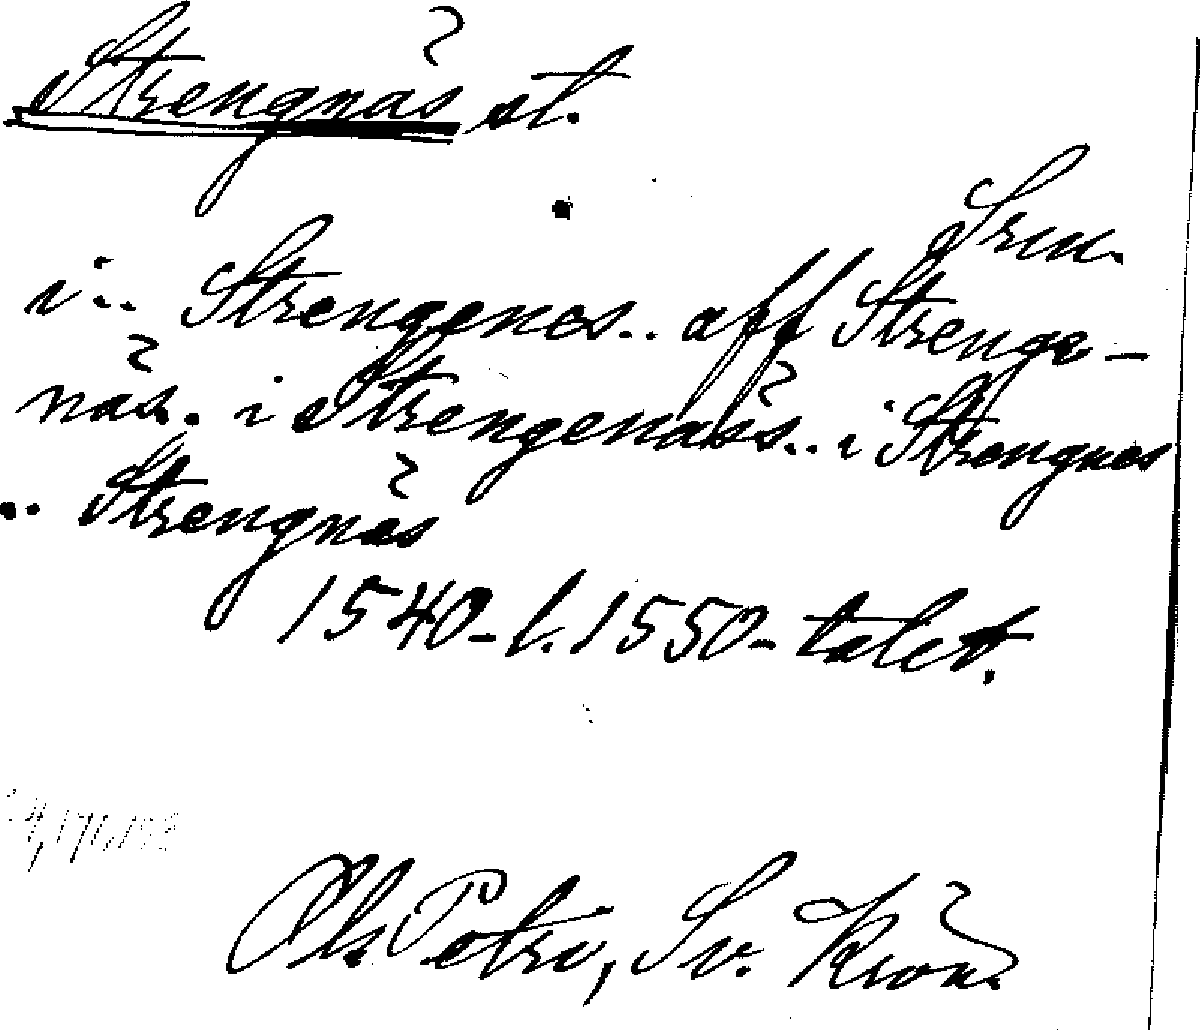 Strengnäs st.
Srm.
i.. Strengenes.. aff Strenge-
näs. i Strengenäss.. i Strengnes
.. Strengnäs
1540-l. 1550-talet.
Ols Petri, Sv. Krön.